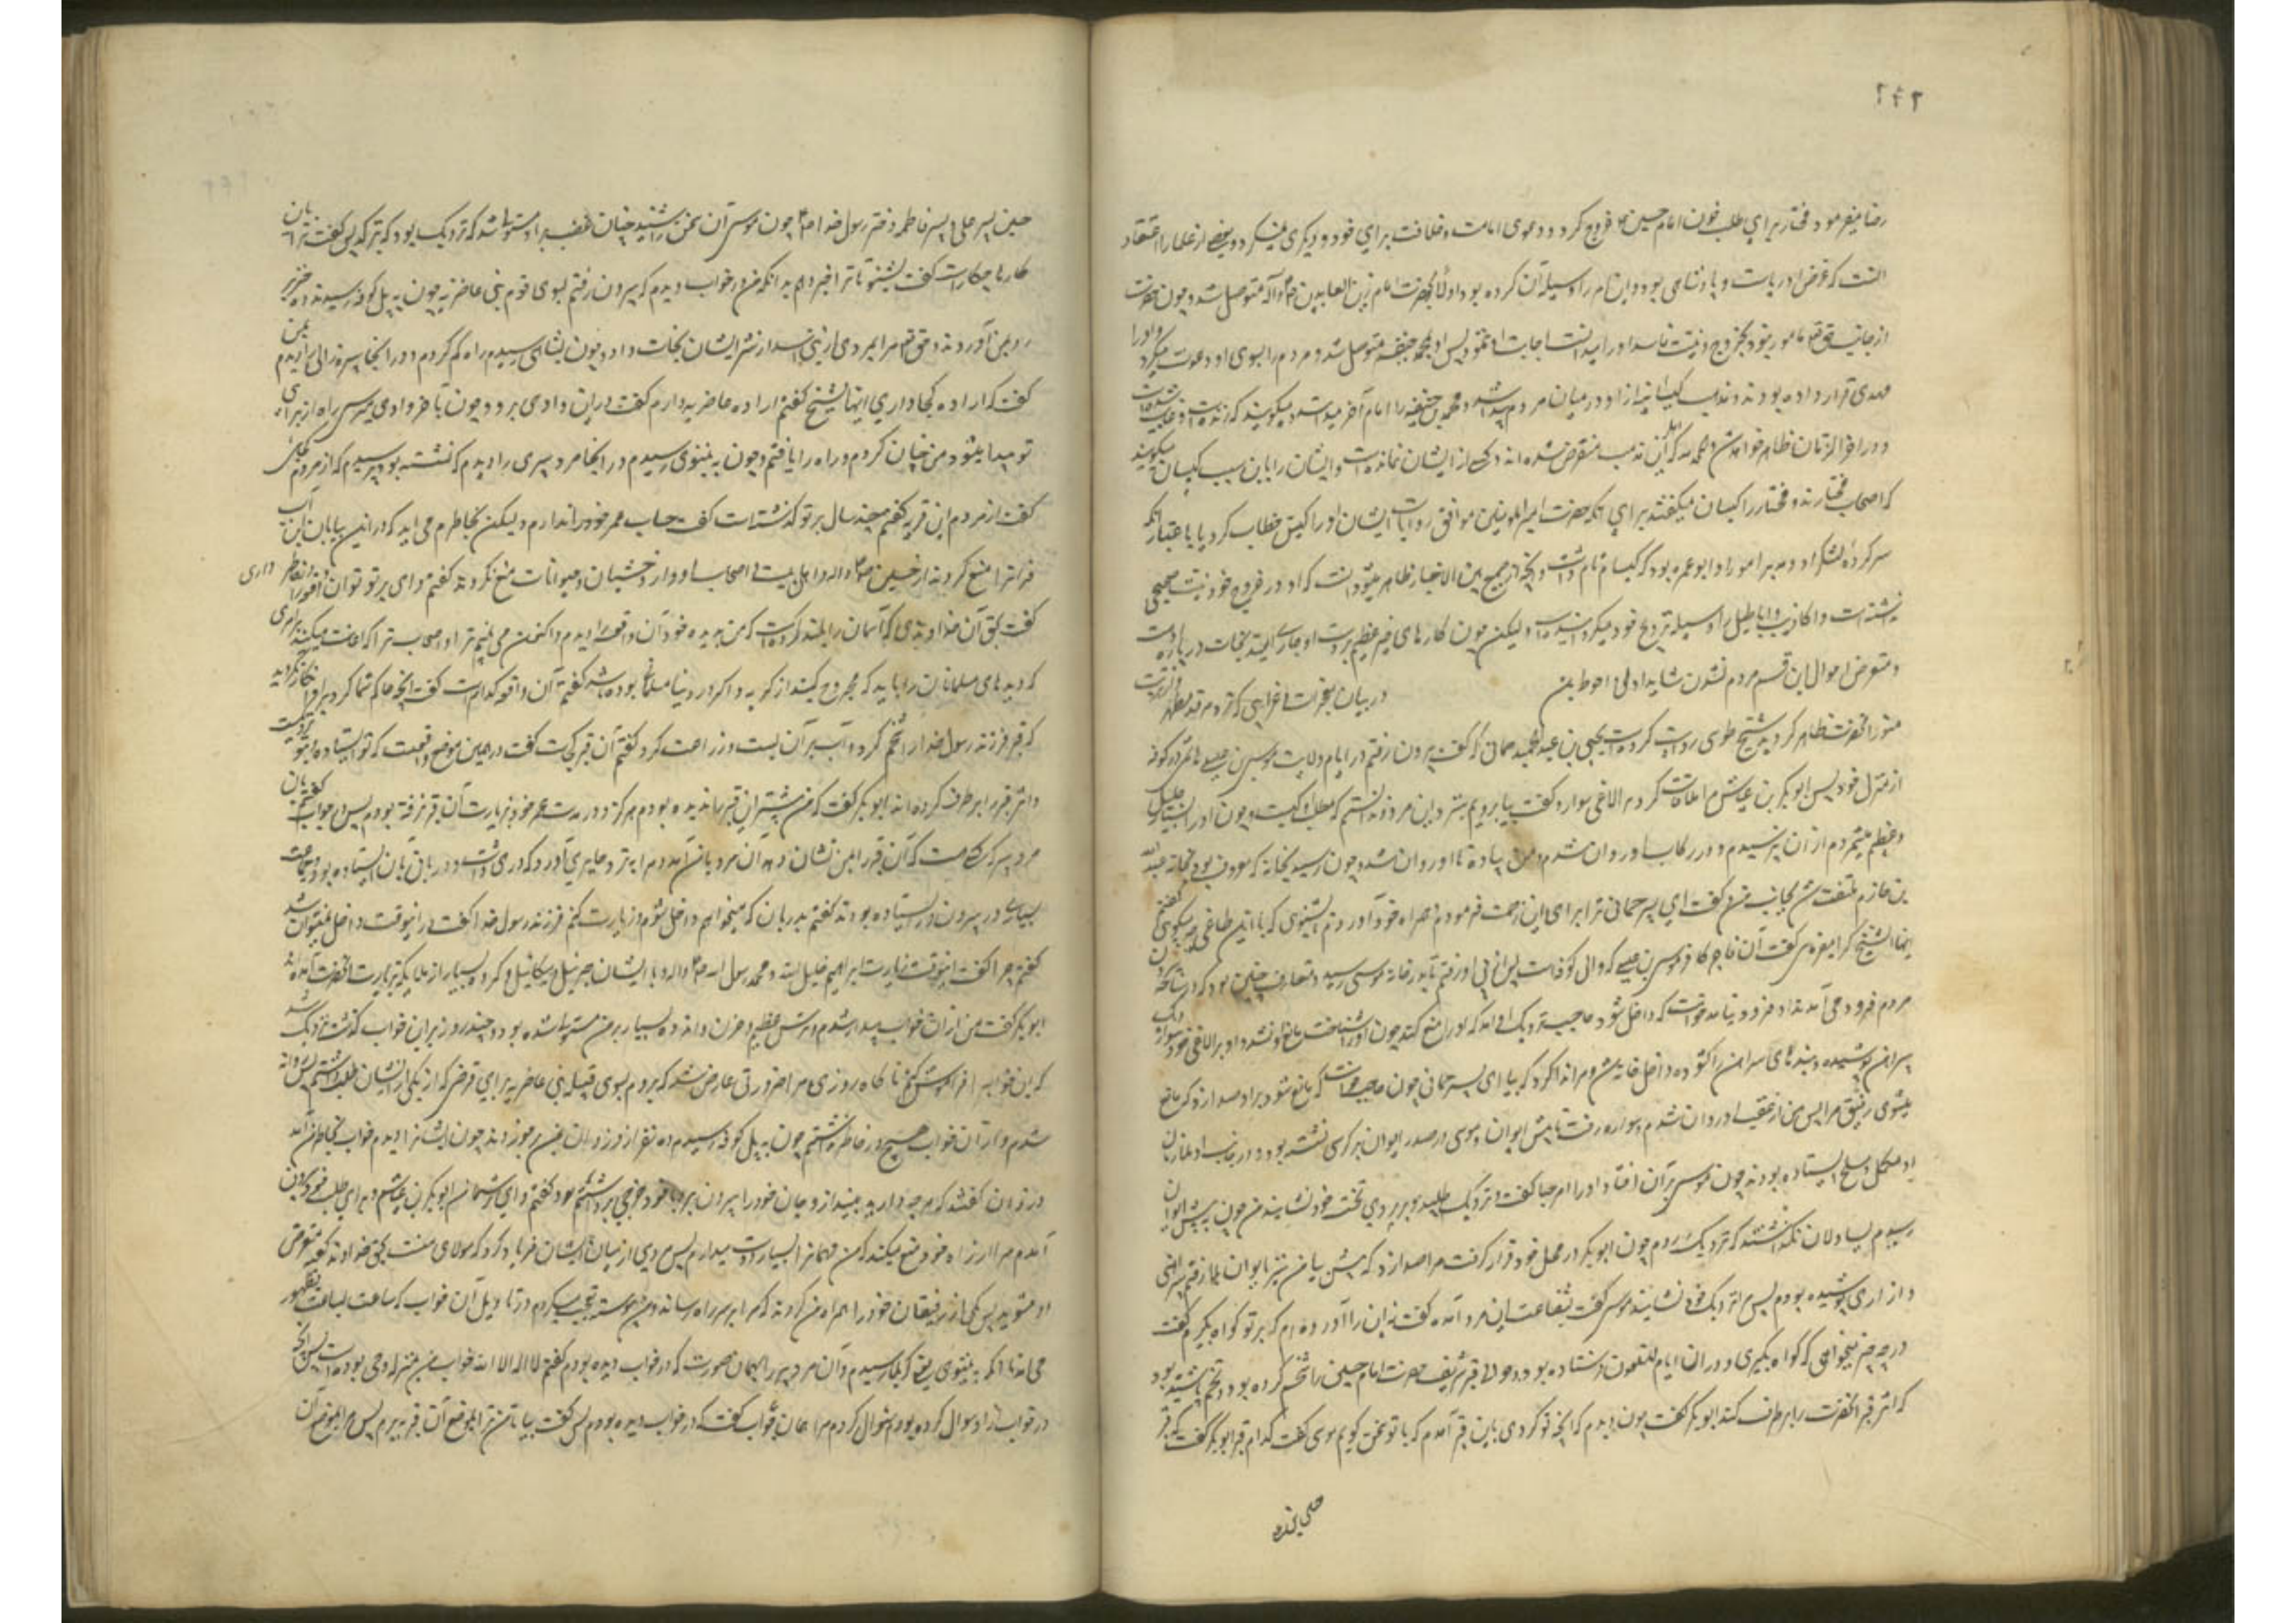 ۲۴۲
رضا میفرمود مختار برای طلب خون امام حسین ع خروج کرد و دعوی امامت و خلافت برای خود و دیگری میکرد و بعضی از علما را اعتقاد
آنست که غرض او ریاست و پادشاهی بود و این امر را وسیله آن کرده بود و اولا بحضرت امام زین العابدین ص وآله متوصل شد و چون حضرت
از جانب حق تع مامور نبود بخروج و نیت فاسد او را میدانست اجابت او ننمود پس او بمحمد حنفیه متوصل شد و مردم را بسوی او دعوت میکرد و او را
مهدی قرار داده بود و مذهب کیسانیه از او در میان مردم پیدا شد و محمد بن حنفیه را امام آخر میدانند و میگویند که زنده است و غایب شده است
و در آخر الزمان ظاهر خواهد شد و الحمد لله که اهل آن مذهب منقرض شده اند و کسی از ایشان نمانده است و ایشان را باین سبب کیسانی میگویند
که اصحاب مختارند و مختار را کیسان میگفتند برای آنکه حضرت امیر المومنین موافق روایات ایشان او را کیس خطاب کرد یا باعتبار آنکه
سرکرده لشکر او و مدبر امور او ابو عمره بود که کیسان نام داشت و آنچه از جمیع این الاخبار ظاهر میشود آنست که او در خروج خود نیت صحیحی
نداشته است و اکاذیب و اباطیل را وسیله ترویج خود میکرده است ولیکن چون کارهای خیر عظیم بر دست او جاری شد امید نجات درباره او هست
و متعرض احوال این قسم مردم نشدن شاید اولی و احوط باشد در بیان معجزات و غرایبی که نزد مرقد مطهر و تربت
منور آنحضرت ظاهر گردید شیخ طوسی روایت کرده است یحیی بن عبد الحمید حمانی که گفت بیرون رفتم در ایام ولایت موسی بن عیسی هاشمی در کوفه
از منزل خود پس ابو بکر بن عیاش مرا ملاقات کرد بر الاغی سوار و گفت بیا برویم بنزد این مرد و ندانستم که مطلب او کیست و چون او را بسیار جلیل
و عظیم میشمردم از آن نپرسیدم و در رکاب او روان شدم و من پیاده با او روان شدم چون رسید بخانه که معروف بود بخانه عبد الله
بن حازم ملتفت شد بجانب من و گفت ای پسر حمانی ترا برای این زحمت فرمودم و همراه خود آوردم تا بشنوی که با این طاغی چه میگویم گفتم
ایها الشیخ کرا میفرمائی گفت آن فاجر کافر موسی بن عیسی که والی کوفه است پس از پی او رفتم تا بدر خانه موسی رسید و متعارف چنین بود که در آنجا
مردم فرود می آمدند او فرود نیامد خواست که داخل شود حاجب نزدیک او آمد که او را منع کند چون او را شناخت مانع او نشد و او بر الاغی خود سوار و یک
پیراهن پوشیده و بندهای پیراهن را گشوده و داخل خانه شد و مرا ندا کرد که بیا ای پسر حمانی چون حاجب خواست که مانع شود بر او صدا زد که مانع
میشوی رفیق مرا پس من از عقب او روان شدم و سواره رفت تا پیش ایوان و موسی در صدر ایوان بر کرسی نشسته بود و در دو جانب او ملازمان
او مکمل و مسلح ایستاده بودند چون موسی را نظر بر آن افتاد او را مرحبا گفت و نزدیک طلبید و بر روی تخت خود نشانید من چون به پیش ایوان
رسیدم یساولان نگذاشتند که نزدیک روم چون ابو بکر در محل خود قرار گرفت مرا صدا زد که پیش بیا من نیز بایوان بالا رفتم پیراهنی
و ازاری پوشیده بودم پس مرا نزدیک خود نشانید موسی گفت بشفاعت این مرد آمده گفت نه این را آورده ام که بر تو گواه بگیرم گفت
در چه چیز میخواهی که گواه بگیری و در آن ایام آن ملعون فرستاده بود و حوالی قبر شریف حضرت امام حسین را شخم کرده بود و تخم پاشیده بود
که اثر قبر آنحضرت را بر طرف کند ابو بکر گفت چون دیدم که آنچه تو کردی باین قبر آمدم که با تو سخن گویم موسی گفت کدام قبر ابو بکر گفت که قبر
حسین پسر علی و پسر فاطمه دختر رسول خدا ص چون موسی آن سخن را شنید چنان غضب بر او مستولی شد که نزدیک بود که بترکد پس گفت ترا به این
کارها چکار است گفت بشنو تا ترا خبر دهم بدانکه من در خواب دیدم که بیرون رفتم بسوی قوم بنی غاضریه چون به پل کوفه رسیدم ده خنزیر
رو بمن آوردند و حق تع مرا بمردی از بنی اسد از شر ایشان نجات داد و چون بشاهی رسیدم راه گم کردم و در آنجا پیره زالی را دیدم بمن
گفت که اراده کجا داری ایها الشیخ گفتم اراده غاضریه دارم گفت در این وادی برو و چون بآخر وادی میرسی راه از برای
تو پیدا میشود من چنان کردم و راه را یافتم و چون به نینوی رسیدم در آنجا مرد پیری را دیدم که نشسته بود پرسیدم که از مردم کجائی
گفت از مردم این قریه گفتم چند سال بر تو گذشته است گفت حساب عمر خود را ندارم ولیکن بخاطرم می آید که در این بیابان این آب
فرات را منع کردند از حسین ص و آله و اهل بیت و اصحاب او و از وحشیان و حیوانات منع نکردند گفتم وای بر تو تو آن واقعه را بخاطر داری
گفت بحق آن خداوندی که آسمان را بلند کرده است که من بدیده خود آن واقعه را دیدم و اکنون می بینم ترا و اصحاب ترا که اعانت میکنند بر امری
که دیدهای مسلمانان را باید که مجروح کنند از گریه و اگر در دنیا مسلمانی بوده باشد گفتم آن واقعه کدام است گفت آنچه حاکم شما کرد بر او انکار نکردید
که قبر فرزند رسول خدا را شخم کرد و آب بر آن بست و زراعت کرد گفتم آن قبر کجاست گفت در همین موضع واقعست که تو ایستاده
و اثر قبر را بر طرف کرده اند ابو بکر گفت که من پیشتر آن قبر را ندیده بودم و هرگز در مدت عمر خود بزیارت آن قبر نرفته بودم پس در خواب گفتم که بآن
مرد پیر کسی هست که آن قبر را بمن نشان دهد آن مرد با من آمد و مرا بنزد حایری آورد که دری داشت و دربانی بآن ایستاده بود و جماعت
بسیاری در بیرون در ایستاده بودند گفتم بدربان که میخواهم داخل شوم و زیارت کنم فرزند رسول خدا را گفت در اینوقت داخل نمیتوان شد
گفتم چرا گفت اینوقت زیارت ابراهیم خلیل الله و محمد رسول الله ص و اله و با ایشان جبرئیل و میکائیل و گروه بسیار از ملائکه بزیارت آنحضرت آمده اند
ابو بکر گفت من از آن خواب بیدار شدم و ترس عظیم و حزن و اندوه بسیار بر من مستولی شده بود و چند روز بر این خواب گذشت و نزدیک شد
که این خواب را فراموش کنم ناگاه روزی مرا ضرورتی عارض شد که بروم بسوی قبیله بنی غاضریه برای قرضی که از یکی از ایشان طلب داشتم پس روانه
شدم و از آن خواب هیچ در خاطر نداشتم چون به پل کوفه رسیدم ده نفر از دزدان بمن برخوردند چون ایشان را دیدم خواب بخاطر من آمد
دزدان گفتند که هر چه داری بینداز و جان خود را بیرون ببر و با خود خرجی برداشته بودم گفتم وای بر شما من ابو بکر بن عیاشم و برای طلب قرضی بیرون
آمدم مرا از راه خود منع میکنید پس مردی از میان ایشان فریاد کرد که مولای منست بحق خداوند کعبه متعرض
او مشوید پس یکی از رفیقان خود را همراه من کردند که مرا بر سر راه رساند و من پیوسته تعجب میکردم در تاویل آن خواب که ساعت بساعت بظهور
می آمد تا آنکه به نینوی رسیدم و آن مرد پیر را بهمان صورت که در خواب دیده بودم گفتم لا اله الا الله خواب من بمنزله وحی بوده است پس آنچه
در خواب از او سوال کرده بودم سوال کردم مرا همان جواب گفت که در خواب دیده بودم پس گفت بیا تا من ترا بموضع آن قبر ببرم پس مرا بموضع آن